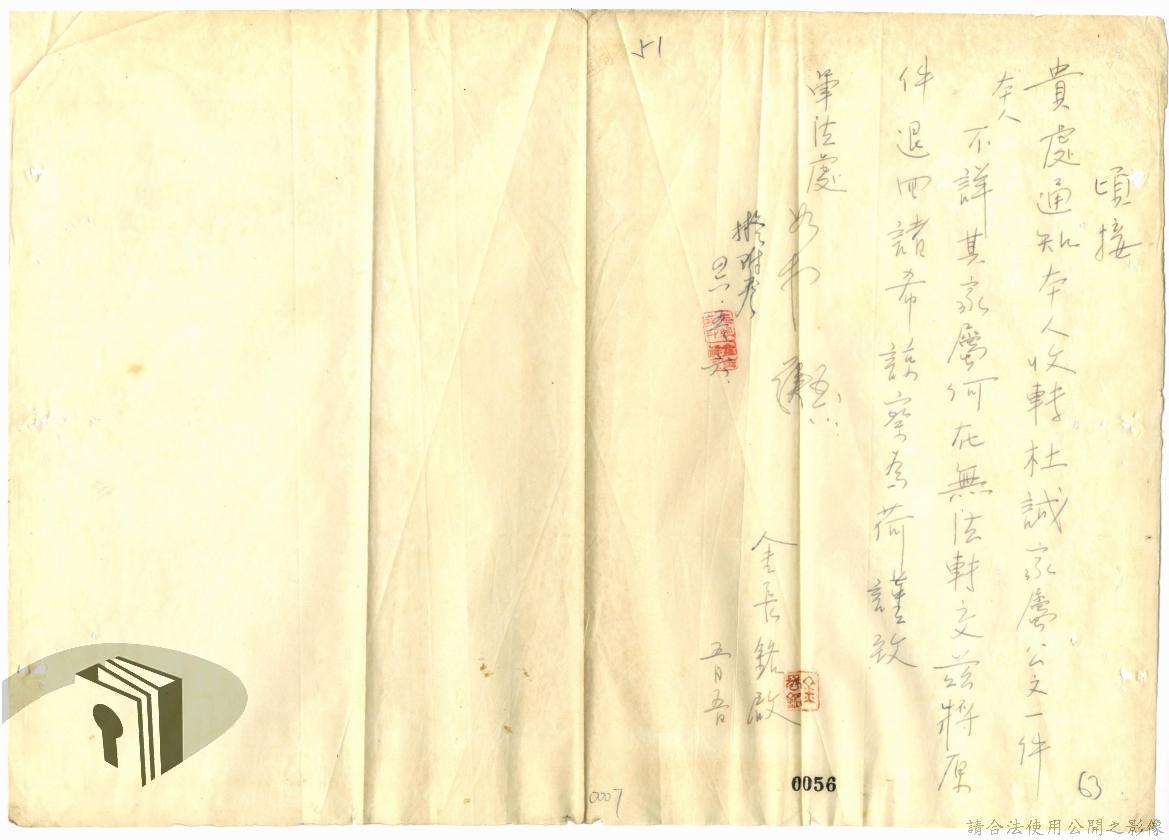 頃接
貴處通知本人收轉杜誠家屬公文一件
本人
不詳其家屬何在無法轉交茲將原
件退回諸希諒察為荷 謹致
軍法處
金長銘啟
五月五日
擬附卷
51
63
0056
0007
請合法使用公開之影像